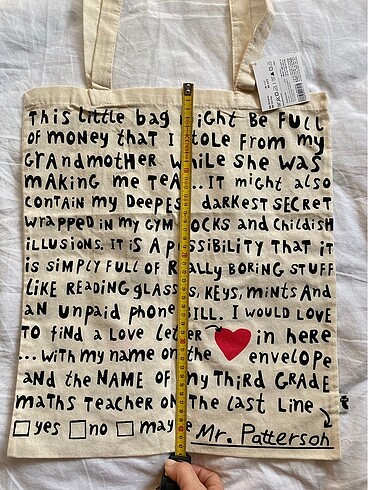 This little bag might be full
of money that I stole from my
grandmother while she was
making me tea... It might also
contain my deepest darkest secret
wrapped in my gym socks and childish
illusions. It is a possibility that it
is simply full of really boring stuff
like reading glasses, keys, mints and
an unpaid phone bill. I would love
to find a love letter in here
...with my name on the envelope
and the name of my third grade
maths teacher on the last line
yes no maybe Mr. Patterson